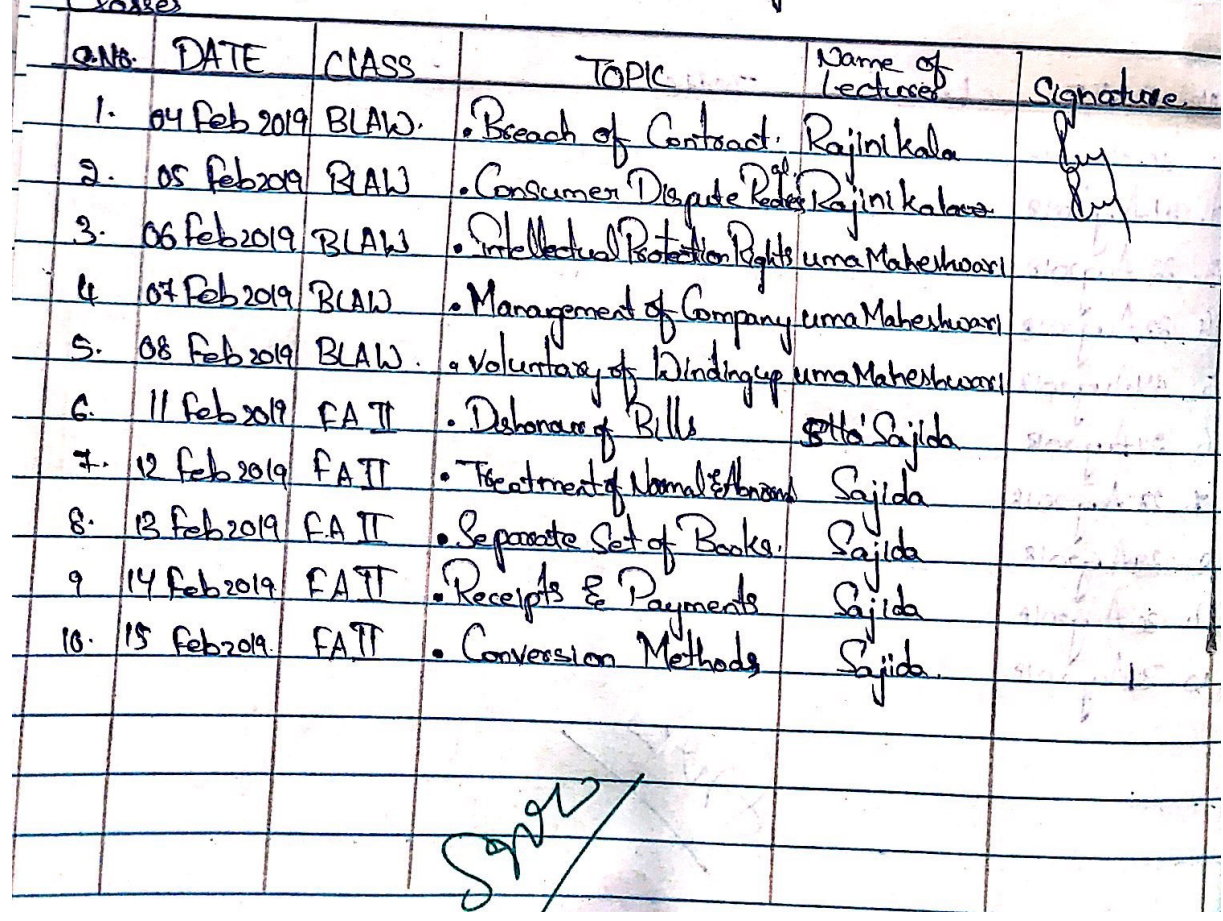 Classes
S.No. DATE CLASS TOPIC Name of Lecturer Signature
1. 04 Feb 2019 BLAW. • Breach of Contract. Rajini kala
2. 05 Feb 2019 BLAW • Consumer Dispute Rajini kala
3. 06 Feb 2019 BLAW • Intellectual Protection Rights uma Maheshwari
4 07 Feb 2019 BLAW • Management of Company uma Maheshwari
5. 08 Feb 2019 BLAW. • Voluntary of Winding up uma Maheshwari
6. 11 Feb 2019 FA II • Dishonour of Bills Sajida
7. 12 Feb 2019 FA II • Treatment of Normal & Sajida
8. 13 Feb 2019 F.A II • Separate Set of Books. Sajida
9 14 Feb 2019 FA II • Receipts & Payments Sajida
10. 15 Feb 2019. FA II • Conversion Methods Sajida.